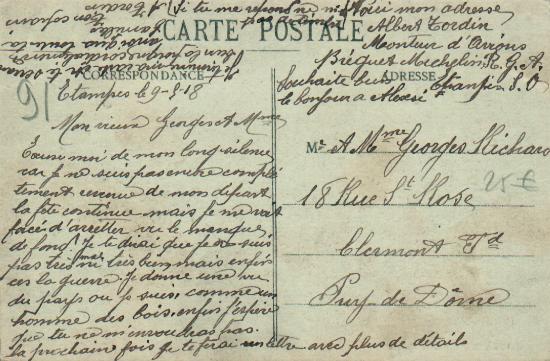 Si tu me reponds ne m'
Voici mon adresse
Albert Tordin
Monteur d'Avions
Bréguet Michelin R.G.A.
Etampes S. O
CARTE POSTALE
CORRESPONDANCE
ADRESSE
Souhaite bien
le bonjour a
91
Etampes le 9-8-18
Mon vieux Georges et Mme
Excuse moi de mon long silence
car je ne suis pas encore complé
tement revenue de mon depart
la fête continue mais je me vois
forcé d'arretter vu le manque
de fond. Je te dirai que je ne suis
pas tres mal ni tres bien mais enfin
ces la guerre. Je donne une vu
du pays ou je suis comme un
homme des bois. enfin j'espère
que tu ne m'envoudras pas.
la prochain fois je te ferai un lettre avec plus de détails
Mr A Mme Georges Richard
18 Rue St Rose
25 €
Clermont Fd
Puy-de Dôme